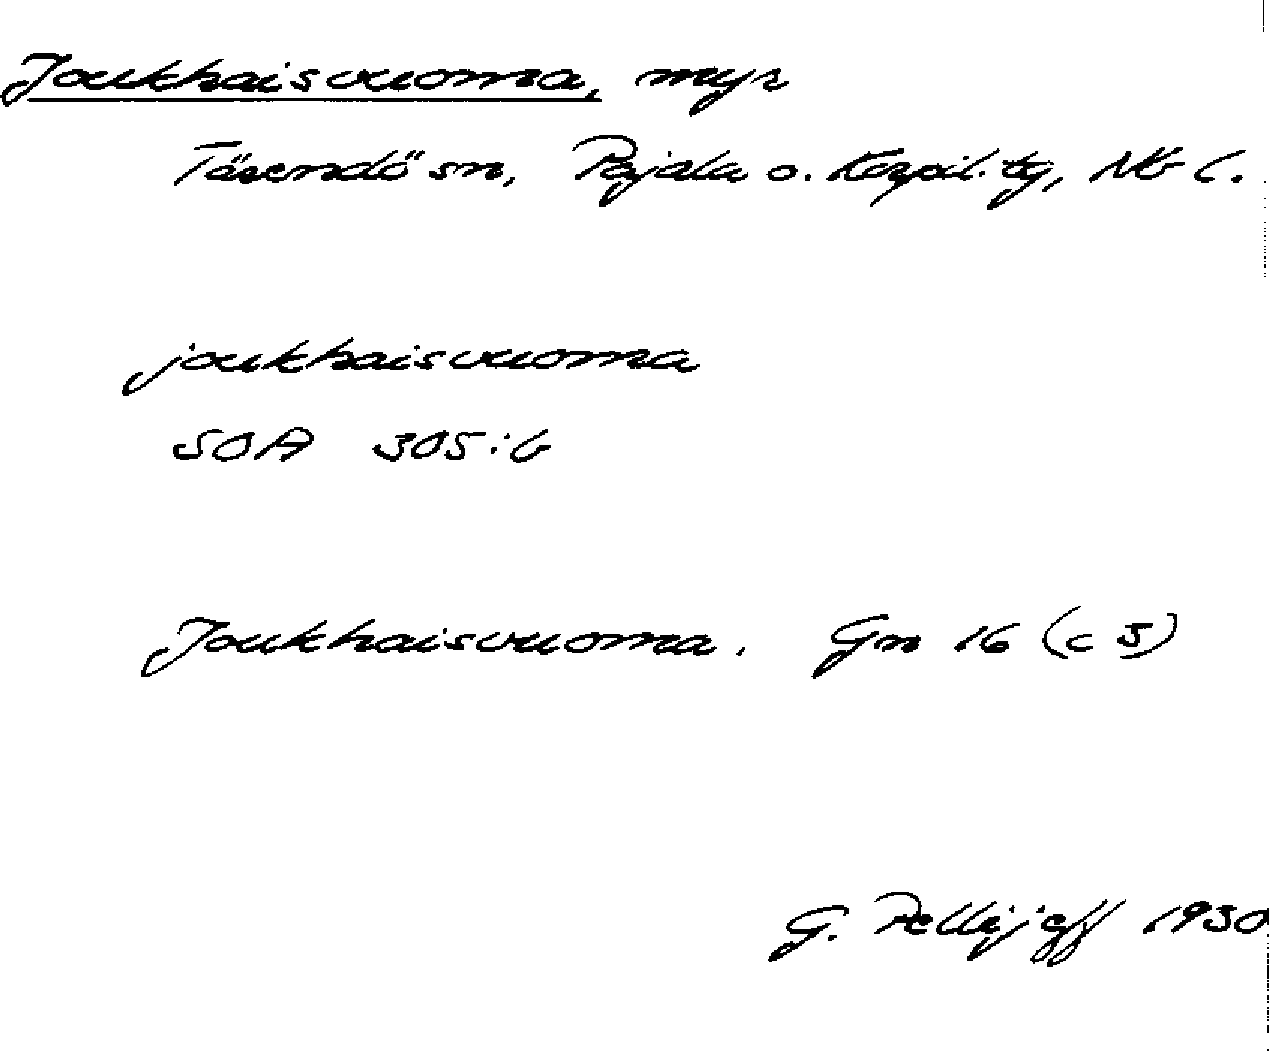 Joukhaisvuoma, myr
Tärendö sn, Pajala o. Korpil. tg, Nb l.
joukhaisvuoma
SOA 305:6
Joukhaisvuoma. Gn 16 (c 5)
G. Pellijeff 1930